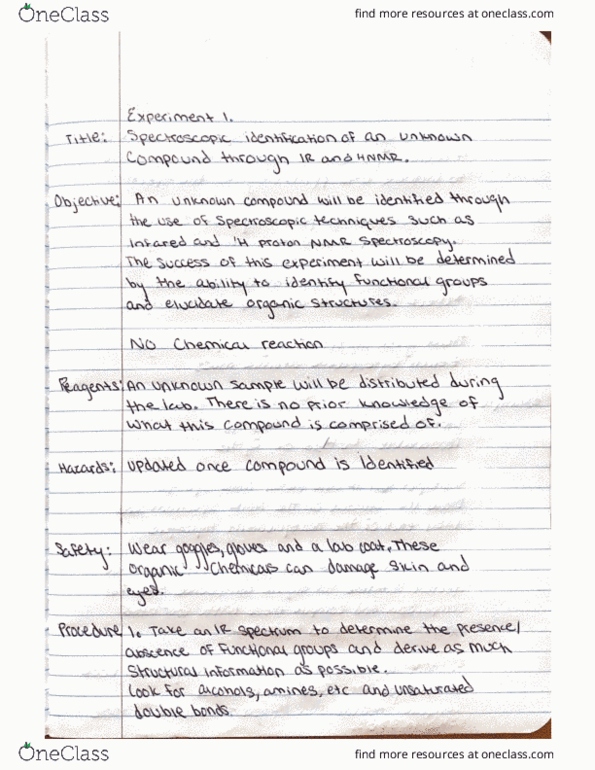 OneClass
find more resources at oneclass.com
Experiment 1.
Title: Spectroscopic identification of an unknown
Compound through IR and HNMR.
Objective: An unknown compound will be identified through
the use of Spectroscopic techniques such as
Infared and 'H proton NMR Spectroscopy.
The success of this experiment will be determined
by the ability to identify functional groups
and elucidate organic structures.
NO Chemical reaction
Reagents: An unknown sample will be distributed during
the lab. There is no prior knowledge of
what this compound is comprised of.
Hazards: updated once compound is identified
Safety: Wear goggles, gloves and a lab coat. These
organic Chemicals can damage skin and
eyes.
Procedure 1. Take an IR spectrum to determine the presence/
abscence of functional groups and derive as much
structural information as possible.
look for alcohols, amines, etc and unsaturated
double bonds.
OneClass
find more resources at oneclass.com